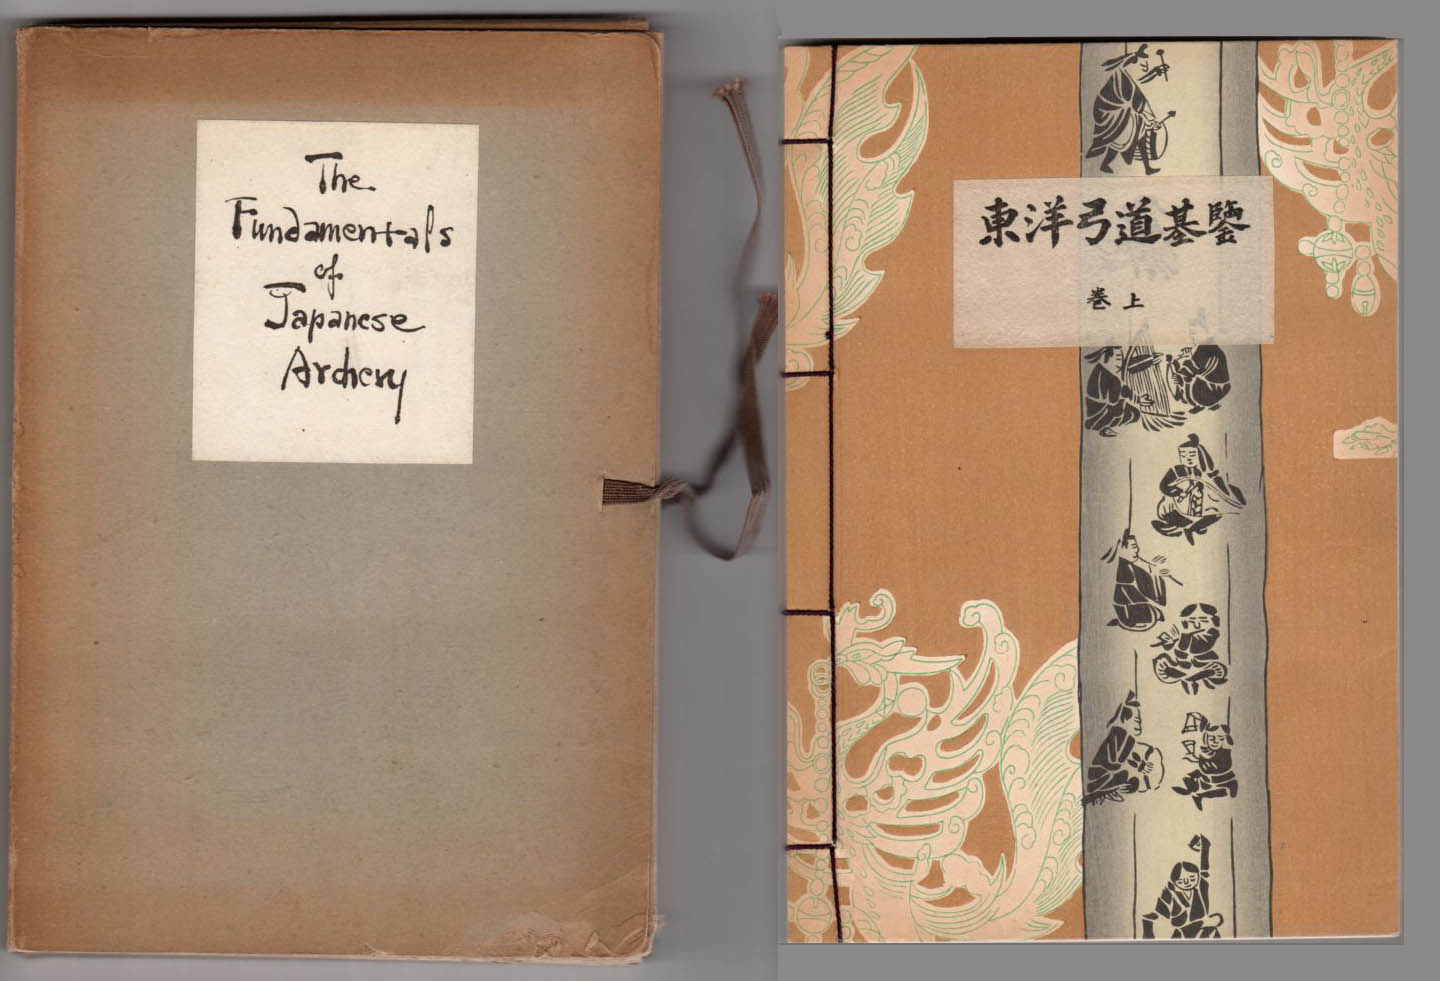 The
Fundamentals
of
Japanese
Archery
東洋弓道基鑒
巻上